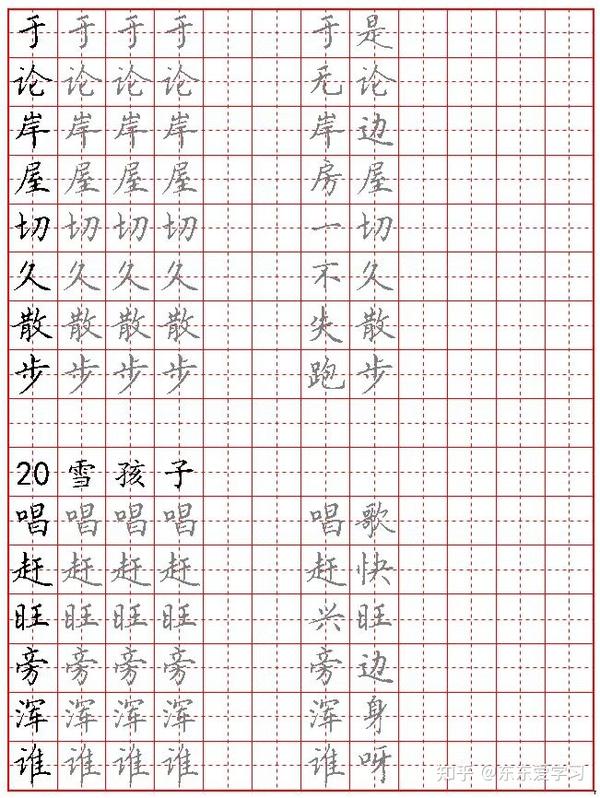 于 于 于 于 于 是
论 论 论 论 无 论
岸 岸 岸 岸 岸 边
屋 屋 屋 屋 房 屋
切 切 切 切 一 切
久 久 久 久 不 久
散 散 散 散 失 散
步 步 步 步 跑 步
20 雪 孩 子
唱 唱 唱 唱 唱 歌
赶 赶 赶 赶 赶 快
旺 旺 旺 旺 兴 旺
旁 旁 旁 旁 旁 边
浑 浑 浑 浑 浑 身
谁 谁 谁 谁 谁 呀
知乎 @东东爱学习